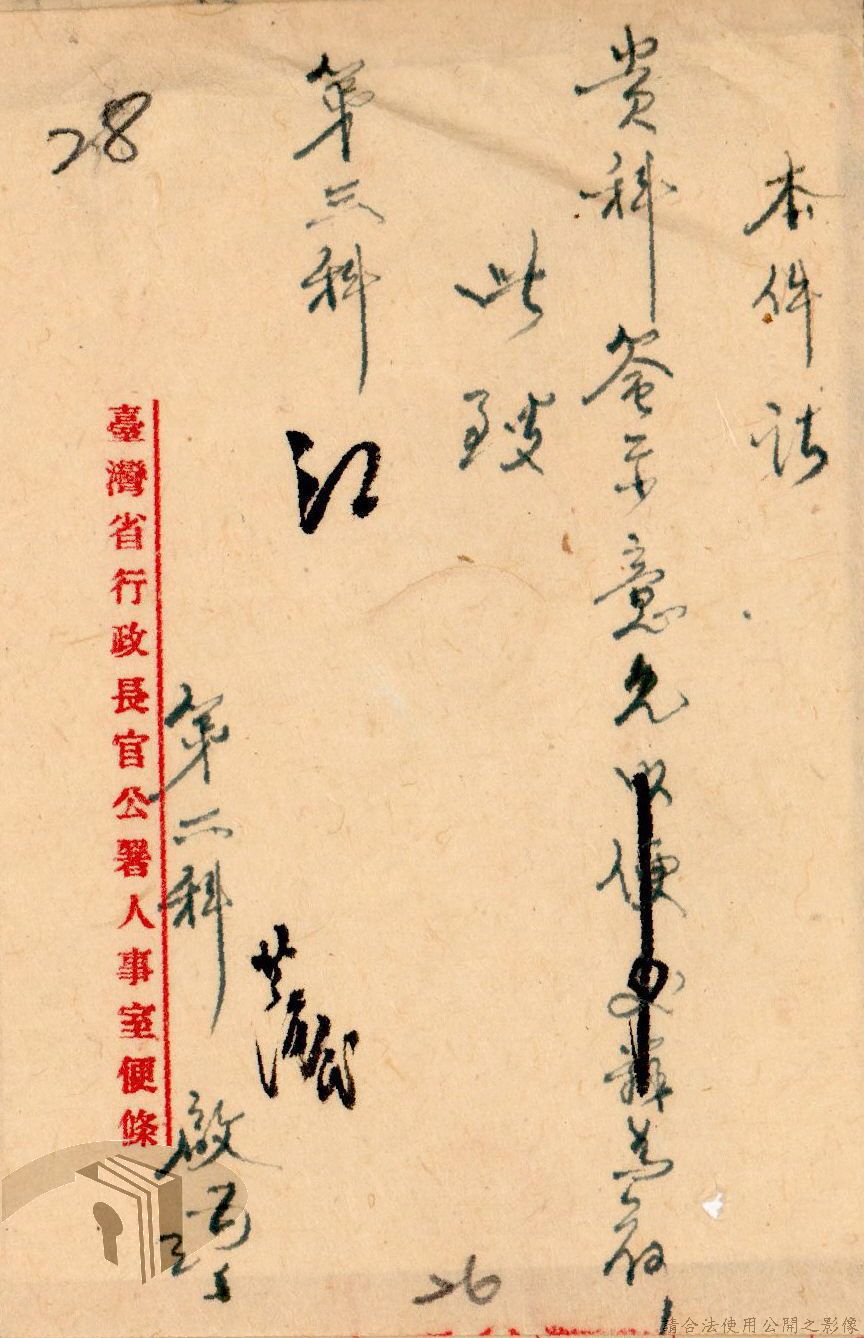 本件請
貴科簽示意見以便
為荷
此致
第三科
第二科 啟
臺灣省行政長官公署人事室便條
28
26
請合法使用公開之影像